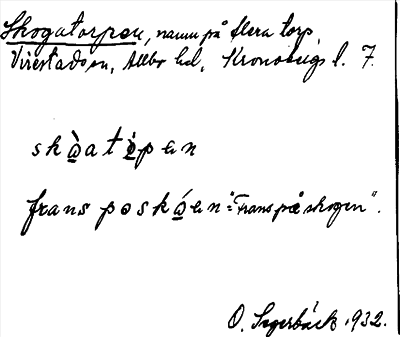 Skogatorpen, namn på flera torp
Virestads sn, Allbo hd, Kronobergs l. 7.
skòatòpen
frans poskóen = "Frans på skogen".
O. Segerbäck 1932.